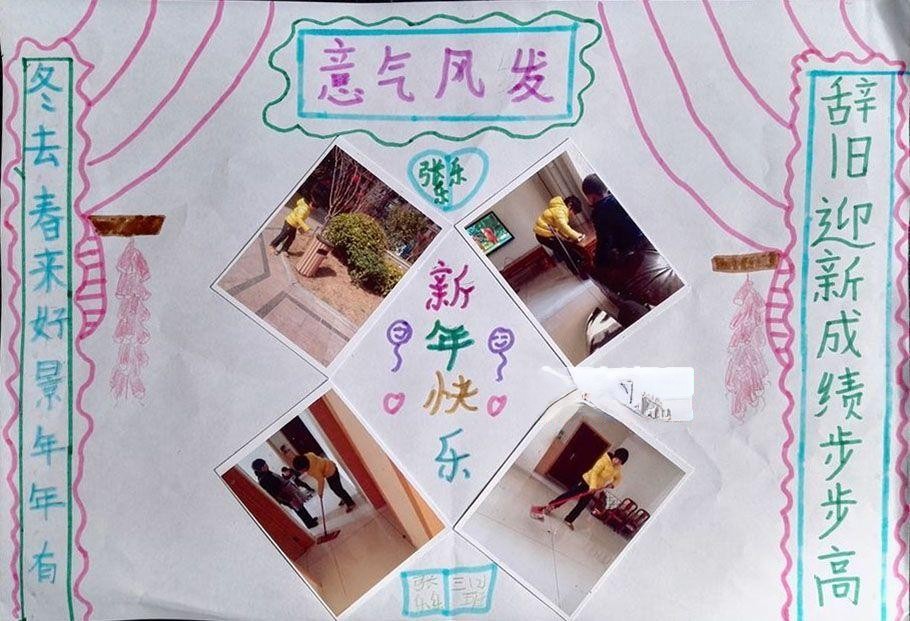 意气风发
辞旧迎新成绩步步高
冬去春来好景年年有
张乐
乐
新年快乐
张
乐乐
班